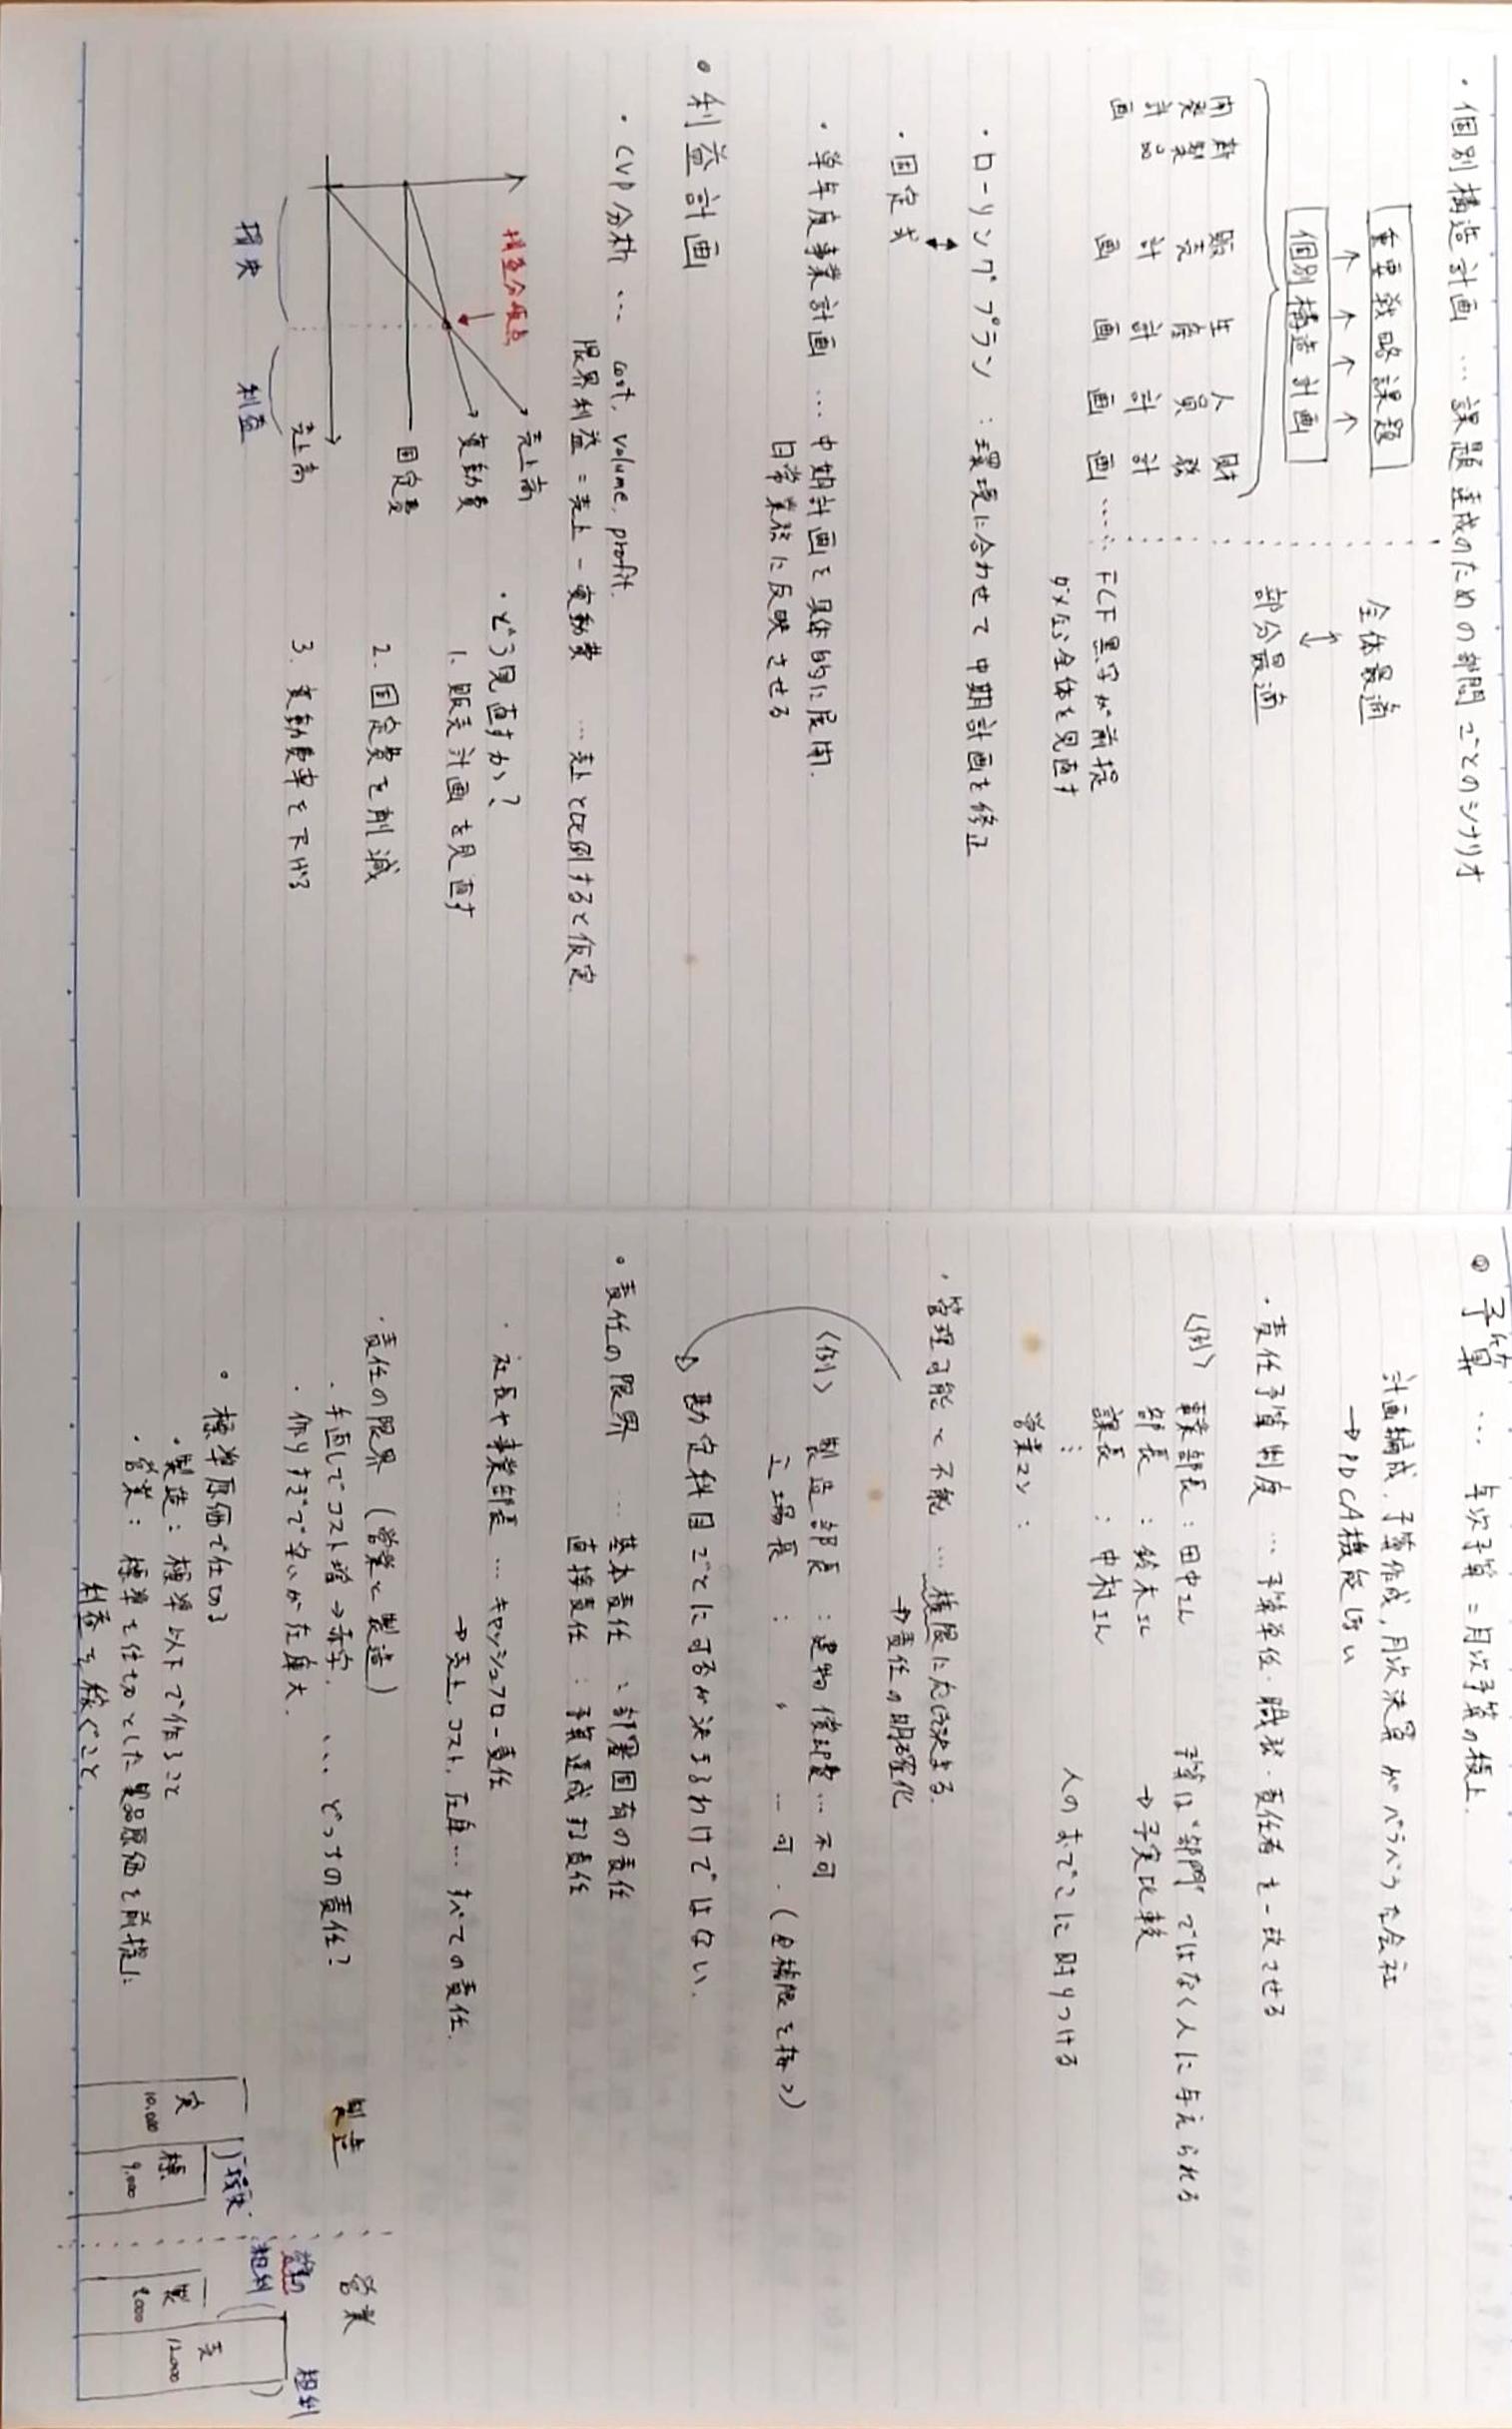 ・個別構造計画 … 課題達成のための部門ごとのシナリオ
重要戦略課題
↑ ↑ ↑ ↑
個別構造計画
全体最適
↕
部分最適
新製品開発計画
販売計画
生産計画
人員計画
財務計画 …… FCF黒字が前提
ダメなら全体を見直す
・ローリングプラン : 環境に合わせて中期計画を修正
↕
・固定式
・単年度事業計画 … 中期計画を具体的に展開.
日常業務に反映させる
・利益計画
・CVP分析 … cost, volume, profit.
限界利益 = 売上 - 変動費 …売上と比例すると仮定.
損益分岐点
売上高
変動費
固定費
売上高
損失
利益
・どう見直すか?
1. 販売計画を見直す
2. 固定費を削減
3. 変動費率を下げる
◎ 予算 … 年次予算 = 月次予算の積上.
計画編成, 予算作成, 月次決算 がバラバラな会社
→ PDCA機能しない
・責任予算制度 … 予算単位・職務・責任者を一致させる
〈例〉 事業部長 : 田中さん
部長 : 鈴木さん
課長 : 中村さん
⋮
営業マン :
予算は"部門"ではなく人に与えられる
→ 予実比較
人のおでこに貼りつける
・管理可能と不能 … 権限に応じ決まる.
→ 責任の明確化
〈例〉 製造部長 : 建物償却費… 不可
工場長 : 〃 … 可 . (全権限を持つ)
勘定科目ごとに可否が決まるわけではない.
・責任の限界 … 基本責任 : 部署固有の責任
直接責任 : 予算達成する責任
・社長や事業部長 … キャッシュフロー責任
→ 売上, コスト, 在庫… すべての責任.
・責任の限界 (営業と製造)
・手直しでコスト増 → 赤字. … どっちの責任?
・作りすぎで安いが在庫大.
・標準原価で仕切る
・製造: 標準以下で作ること
・営業: 標準を仕切とした製品原価を前提に
利益を稼ぐこと.
製造
営業
営業の
粗利
粗利
損失
実
10,000
標
9,000
製
9,000
売
12,000